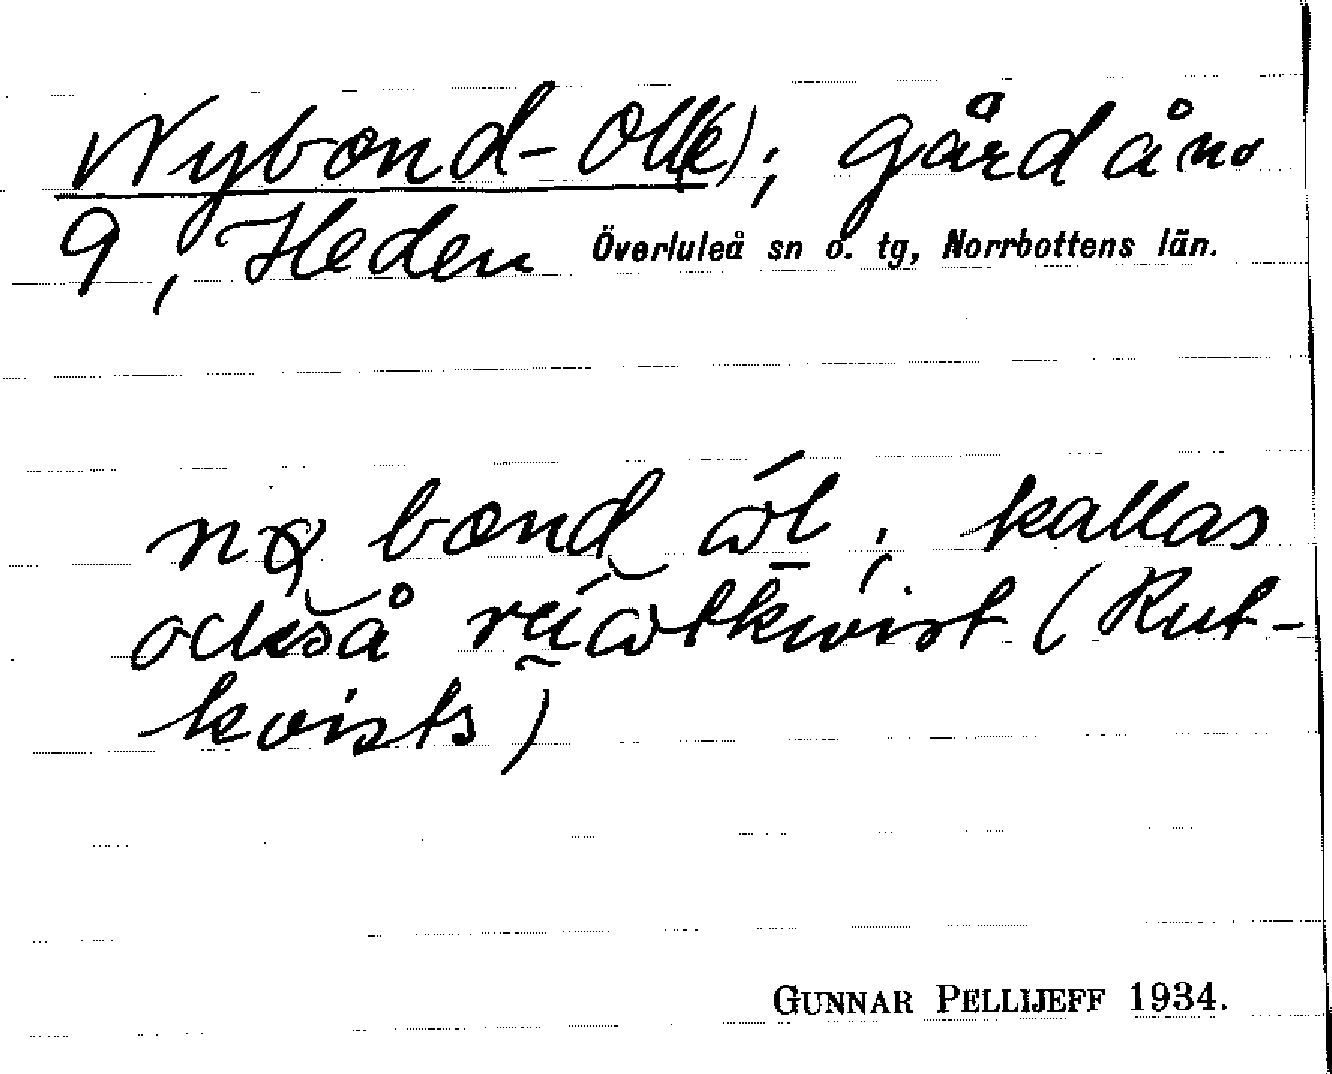 Nybond-Oll(e); gård å no
9, Heden Överluleå sn o. tg, Norrbottens län.
bond ; kallas
också (Rut-
kvists)
GUNNAR PELLIJEFF 1934.